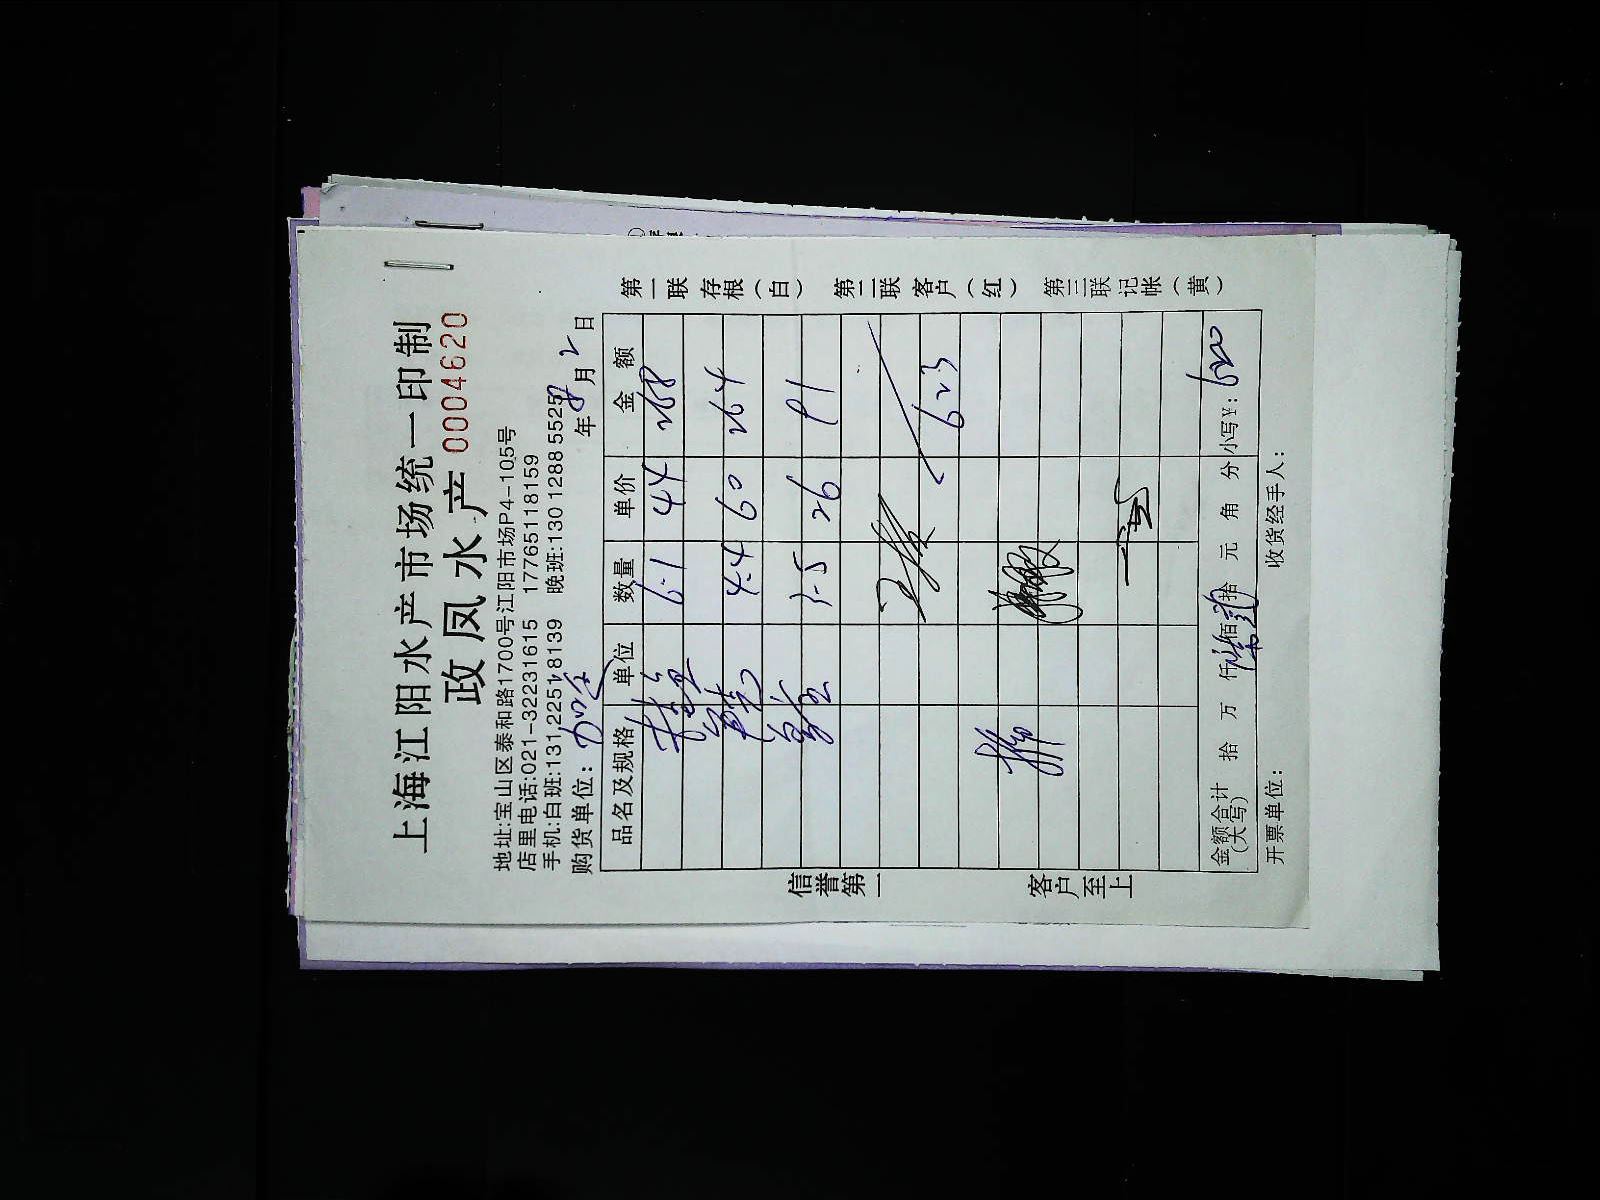 上海江阳水产市场统一印制
政凤水产 0004620
地址:宝山区泰和路1700号江阳市场P4-105号
店里电话:021-32231615 17765118159
手机:白班:131 2251 8139 晚班:130 1288 5525
购货单位: 年 8 月 2 日
品名及规格 单位 数量 单价 金额
6.1 44 268
4.4 60 264
3.5 26 91
623
金额合计(大写) 拾 万 仟 佰 拾 元 角 分 小写¥: 620
开票单位: 收货经手人:
第一联 存根(白) 第二联 客户(红) 第三联 记帐(黄)
信誉第一
客户至上